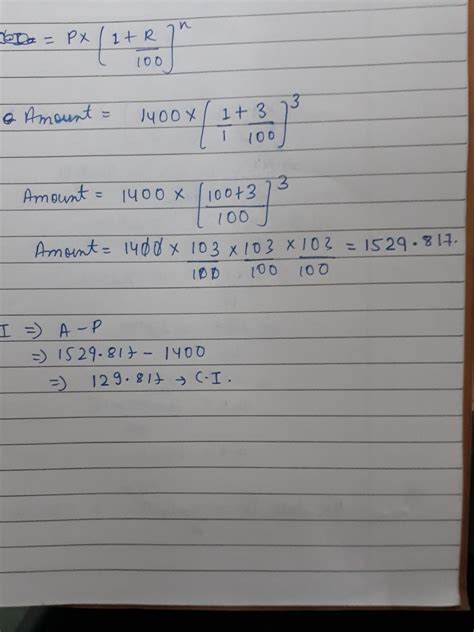 = P× [1 + R/100]^n
Amount = 1400 × [1/1 + 3/100]^3
Amount = 1400 × [100+3/100]^3
Amount = 1400 × 103/100 × 103/100 × 103/100 = 1529.817.
I ⇒ A - P
⇒ 1529.817 - 1400
⇒ 129.817 → C.I.